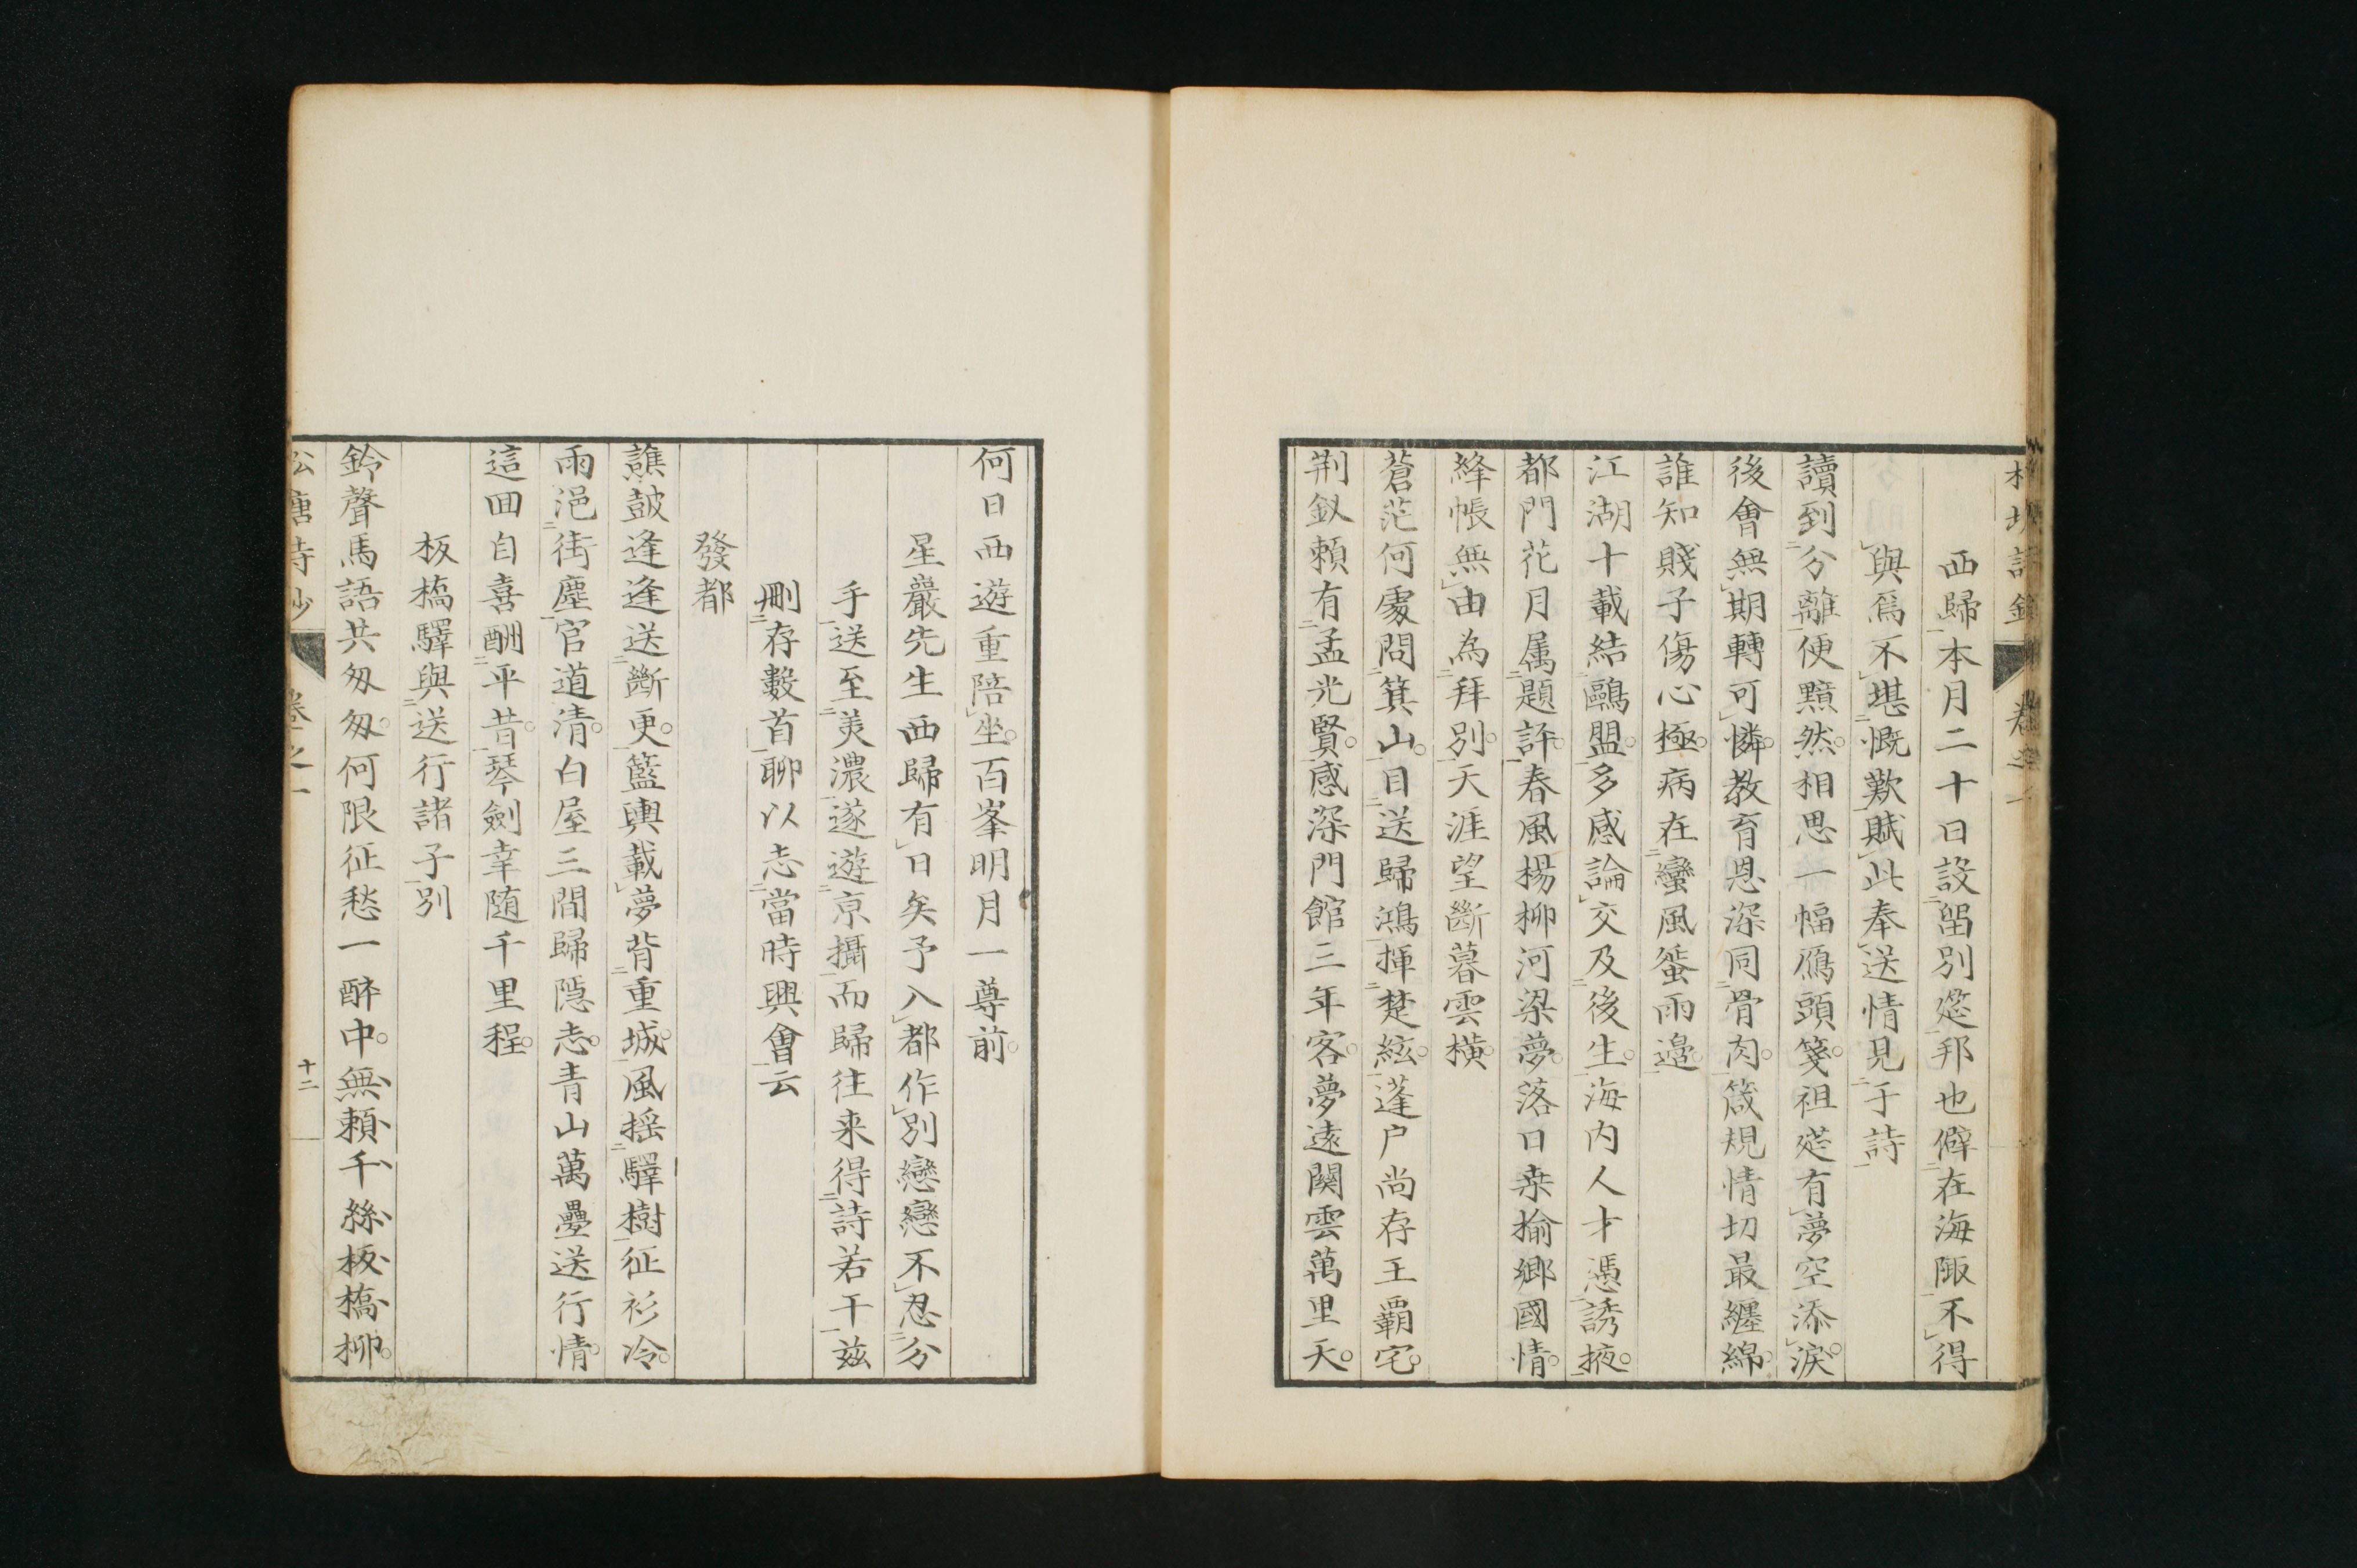 西歸本月二十日設留別筵邦也僻在海陬不得
與焉不堪慨歎賦此奉送情見于詩
讀到分離便黯然相思一幅鴈頭箋祖筵有夢空添淚
後會無期轉可憐教育恩深同骨肉箴規情切最纏綿
誰知賤子傷心極病在蠻風蜑雨邉
江湖十載結鷗盟多感論交及後生海内人才憑誘掖
都門花月属題評春風楊柳河梁夢落日桒揄鄉國情
絳帳無由為拜別天涯望斷暮雲橫
蒼茫何處問箕山目送歸鴻揮楚絃蓬户尚存王霸宅
荆釵賴有孟光賢感深門館三年客夢遠關雲萬里天
何日西遊重陪坐百峯明月一尊前
星巖先生西歸有日矣予入都作別戀戀不忍分
手送至美濃遂遊京攝而歸往来得詩若干茲
刪存數首聊以志當時興會云
發都
譙皷逢逢送斷更籃輿載夢背重城風摇驛樹征衫冷
雨浥街塵官道清白屋三間歸隱志青山萬疊送行情
這囬自喜酬平昔琴劍幸随千里程
板橋驛與送行諸子別
鈴聲馬語共匆匆何限征愁一醉中無賴千絲板橋柳
卷之一
十二